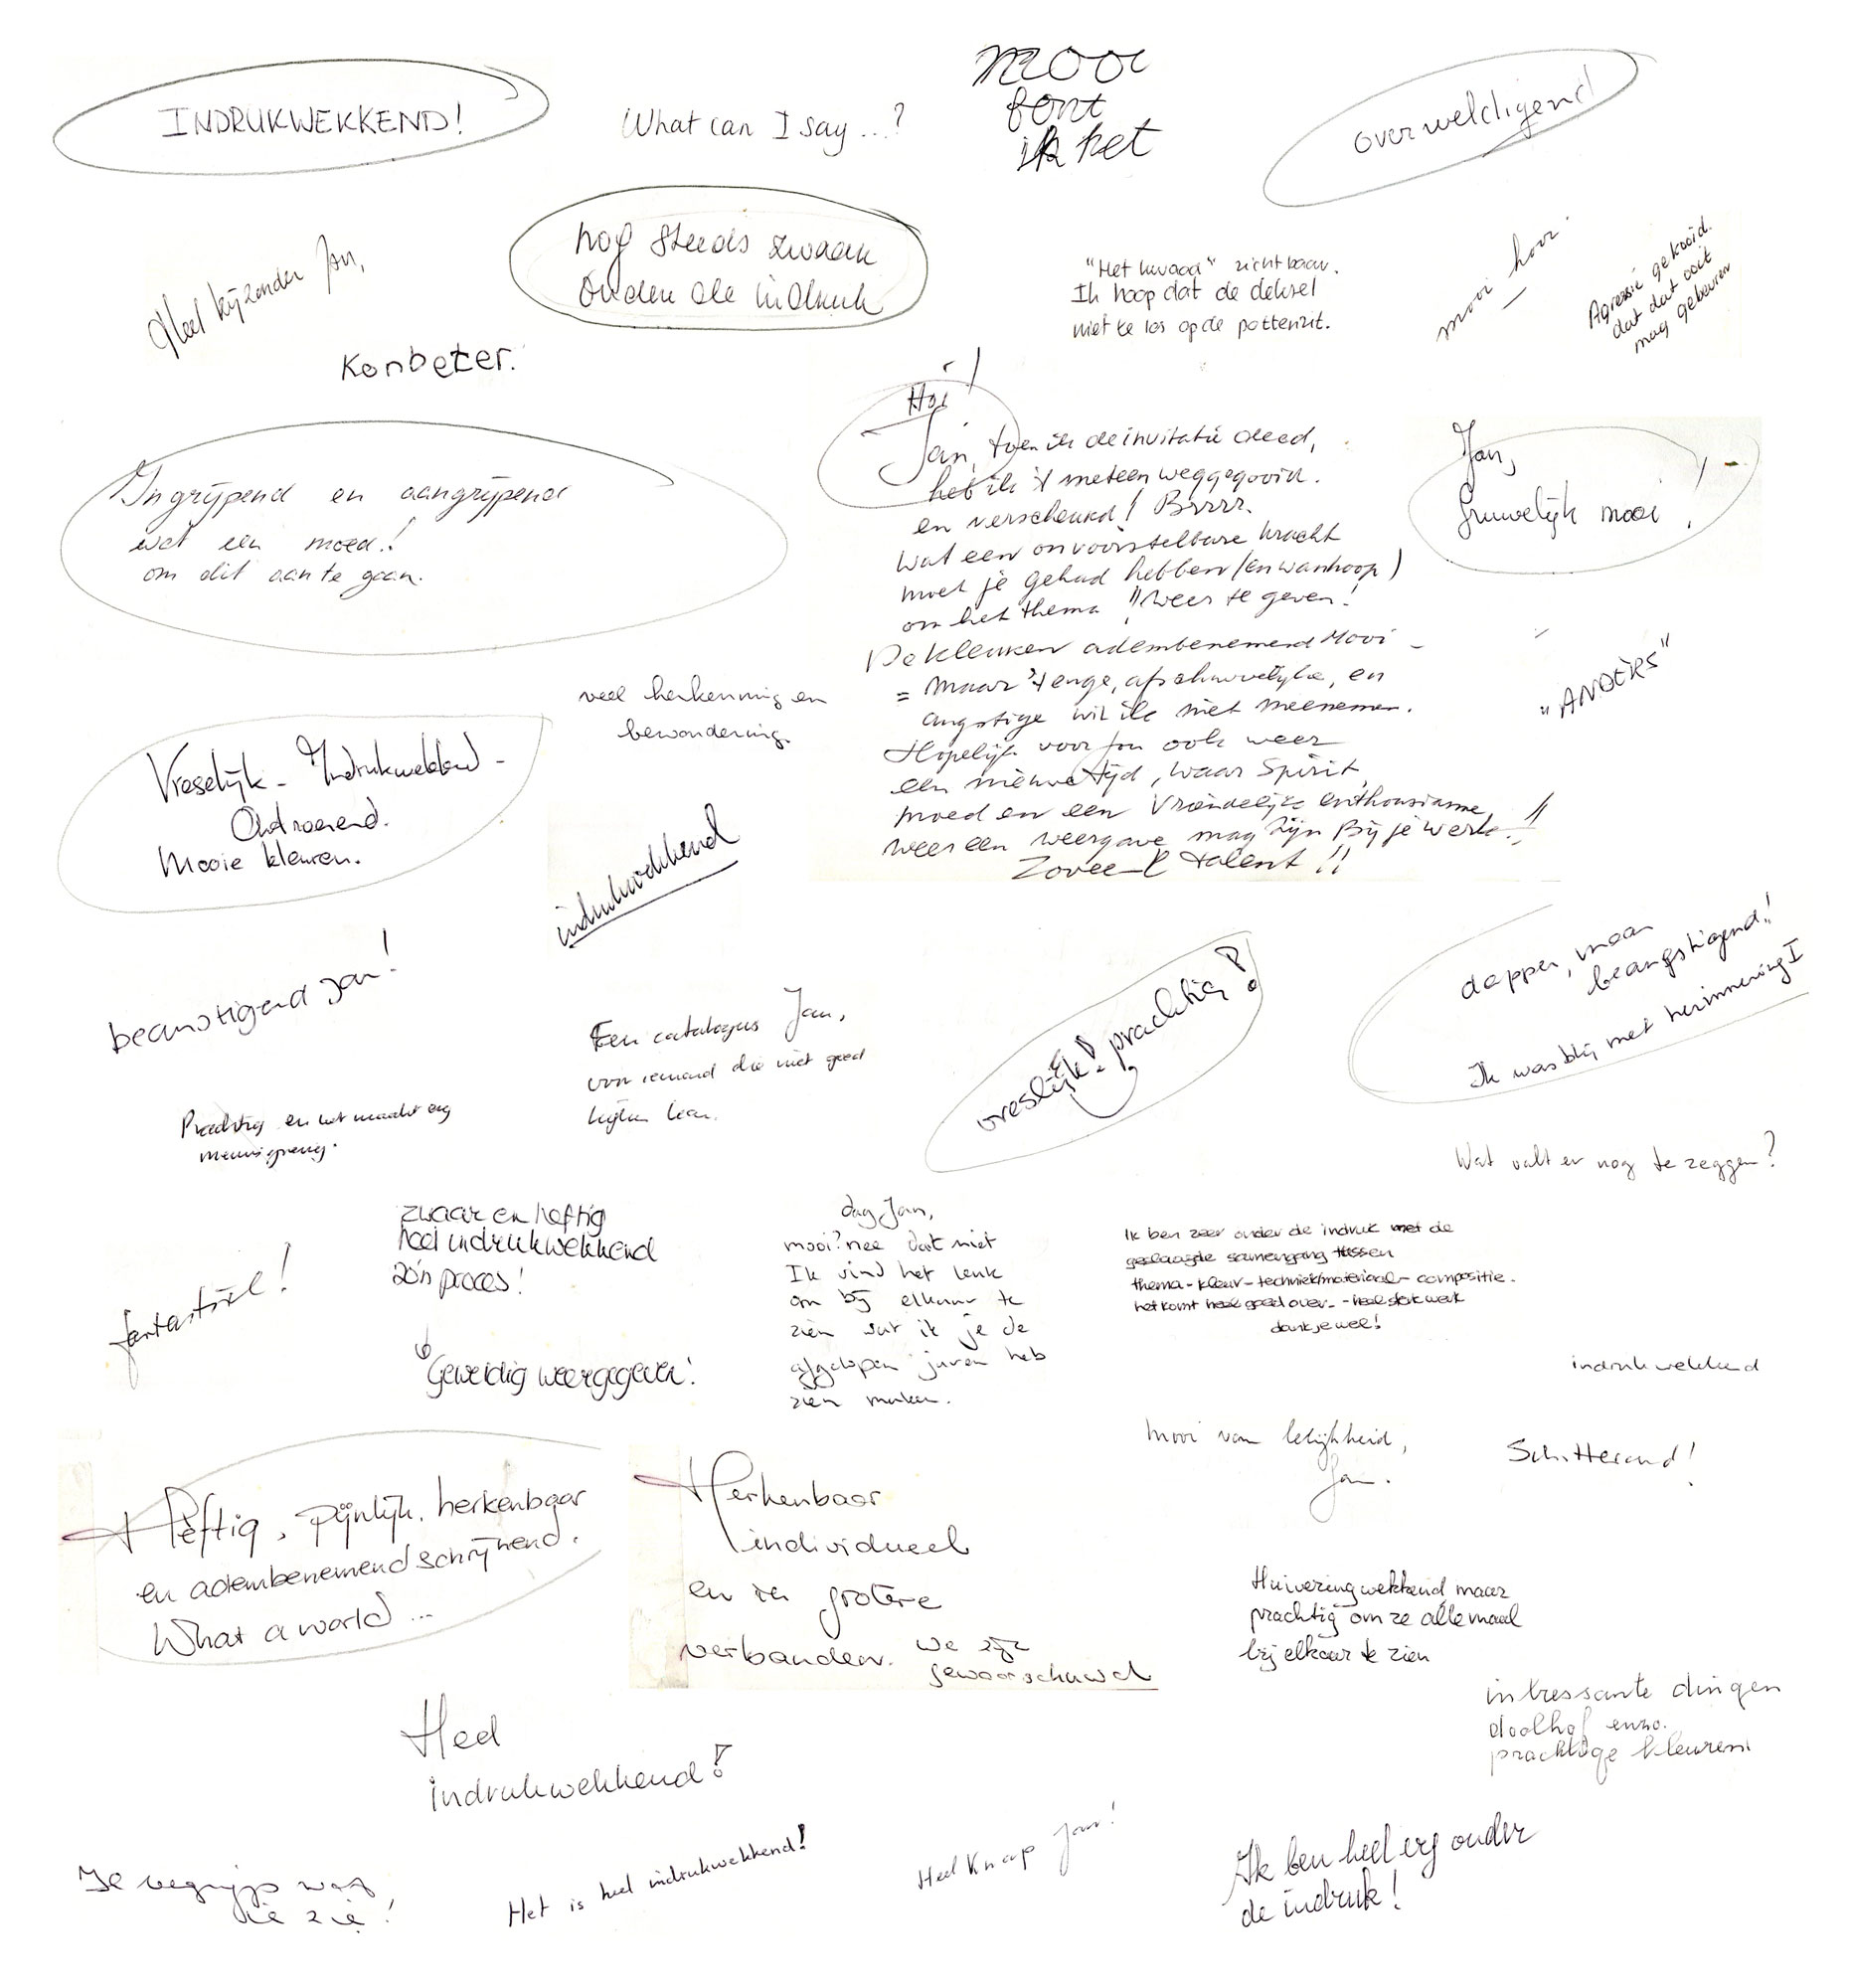 INDRUKWEKKEND!
What can I say...?
mooi
font
ik het
overweldigend
Heel bijzonder Jan,
nog steeds zwaar
onder de indruk
"Het kwaad" zichtbaar.
Ik hoop dat de deksel
niet te los op de potten zit.
mooi hoor
Agressie gekooid.
dat dat ooit
mag gebeuren
Kon beter.
Ingrijpend en aangrijpend
wat een moed!
om dit aan te gaan.
Hoi!
Jan, toen ik de invitatie deed,
heb ik 't meteen weggegooid.
en verscheurd! Brrrr.
Wat een onvoorstelbare kracht
moet je gehad hebben (en wanhoop)
om het thema weer te geven!
De kleuren adembenemend mooi -
= maar 't enge, afschuwelijke, en
angstige wil ik niet meenemen.
Hopelijk voor jou ook weer
een nieuwe tijd, waar Spirit,
moed en een vriendelijk enthousiasme
weer een weergave mag zijn Bij je werk.!!
Zoveel talent!!
Jan,
Gruwelijk mooi!
"ANDERS"
veel herkenning en
bewondering.
Vreselijk - Indrukwekkend -
Ontroerend.
Mooie kleuren.
indrukwekkend
beangstigend Jan!
Een catalogus Jan,
voor iemand die niet goed
kijken kan.
vreselijk! prachtig!
dapper, maar
beangstigend!!
Ik was blij met herinnering I
Prachtig en het maakt erg
nieuwsgierig.
Wat valt er nog te zeggen?
zwaar en heftig
heel indrukwekkend
zo'n proces!
fantastisch!
Geweldig weergegeven!
dag Jan,
mooi? nee dat niet
Ik vind het leuk
om bij elkaar te
zien wat ik je de
afgelopen jaren heb
zien maken.
Ik ben zeer onder de indruk met de
geslaagde samengang tussen
thema - kleur - techniek/materiaal - compositie.
het komt heel goed over - heel sterk werk
dankjewel!
indrukwekkend
mooi van lelijkheid,
Jan.
Schitterend!
Heftig, pijnlijk, herkenbaar
en adembenemend schrijnend.
What a world...
Herkenbaar
individueel
en in grotere
verbanden. we zijn
gewaarschuwd
Huiveringwekkend, maar
prachtig om ze allemaal
bij elkaar te zien
intressante dingen
doolhof enzo.
prachtige kleuren
Heel
indrukwekkend!
Het is heel indrukwekkend!
Heel Knap Jan!
Ik ben heel erg onder
de indruk!
Ik begrijp wat
ik zie!